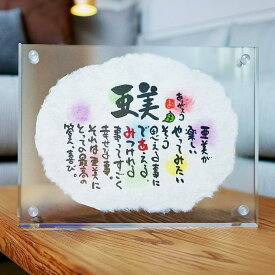 亜美
亜美が
楽しい
やってみたい
そう
思える事に
であえる、
みつけれる
事ってすごく
幸せな事。
それは亜美に
とっての最高の
笑え、喜び。